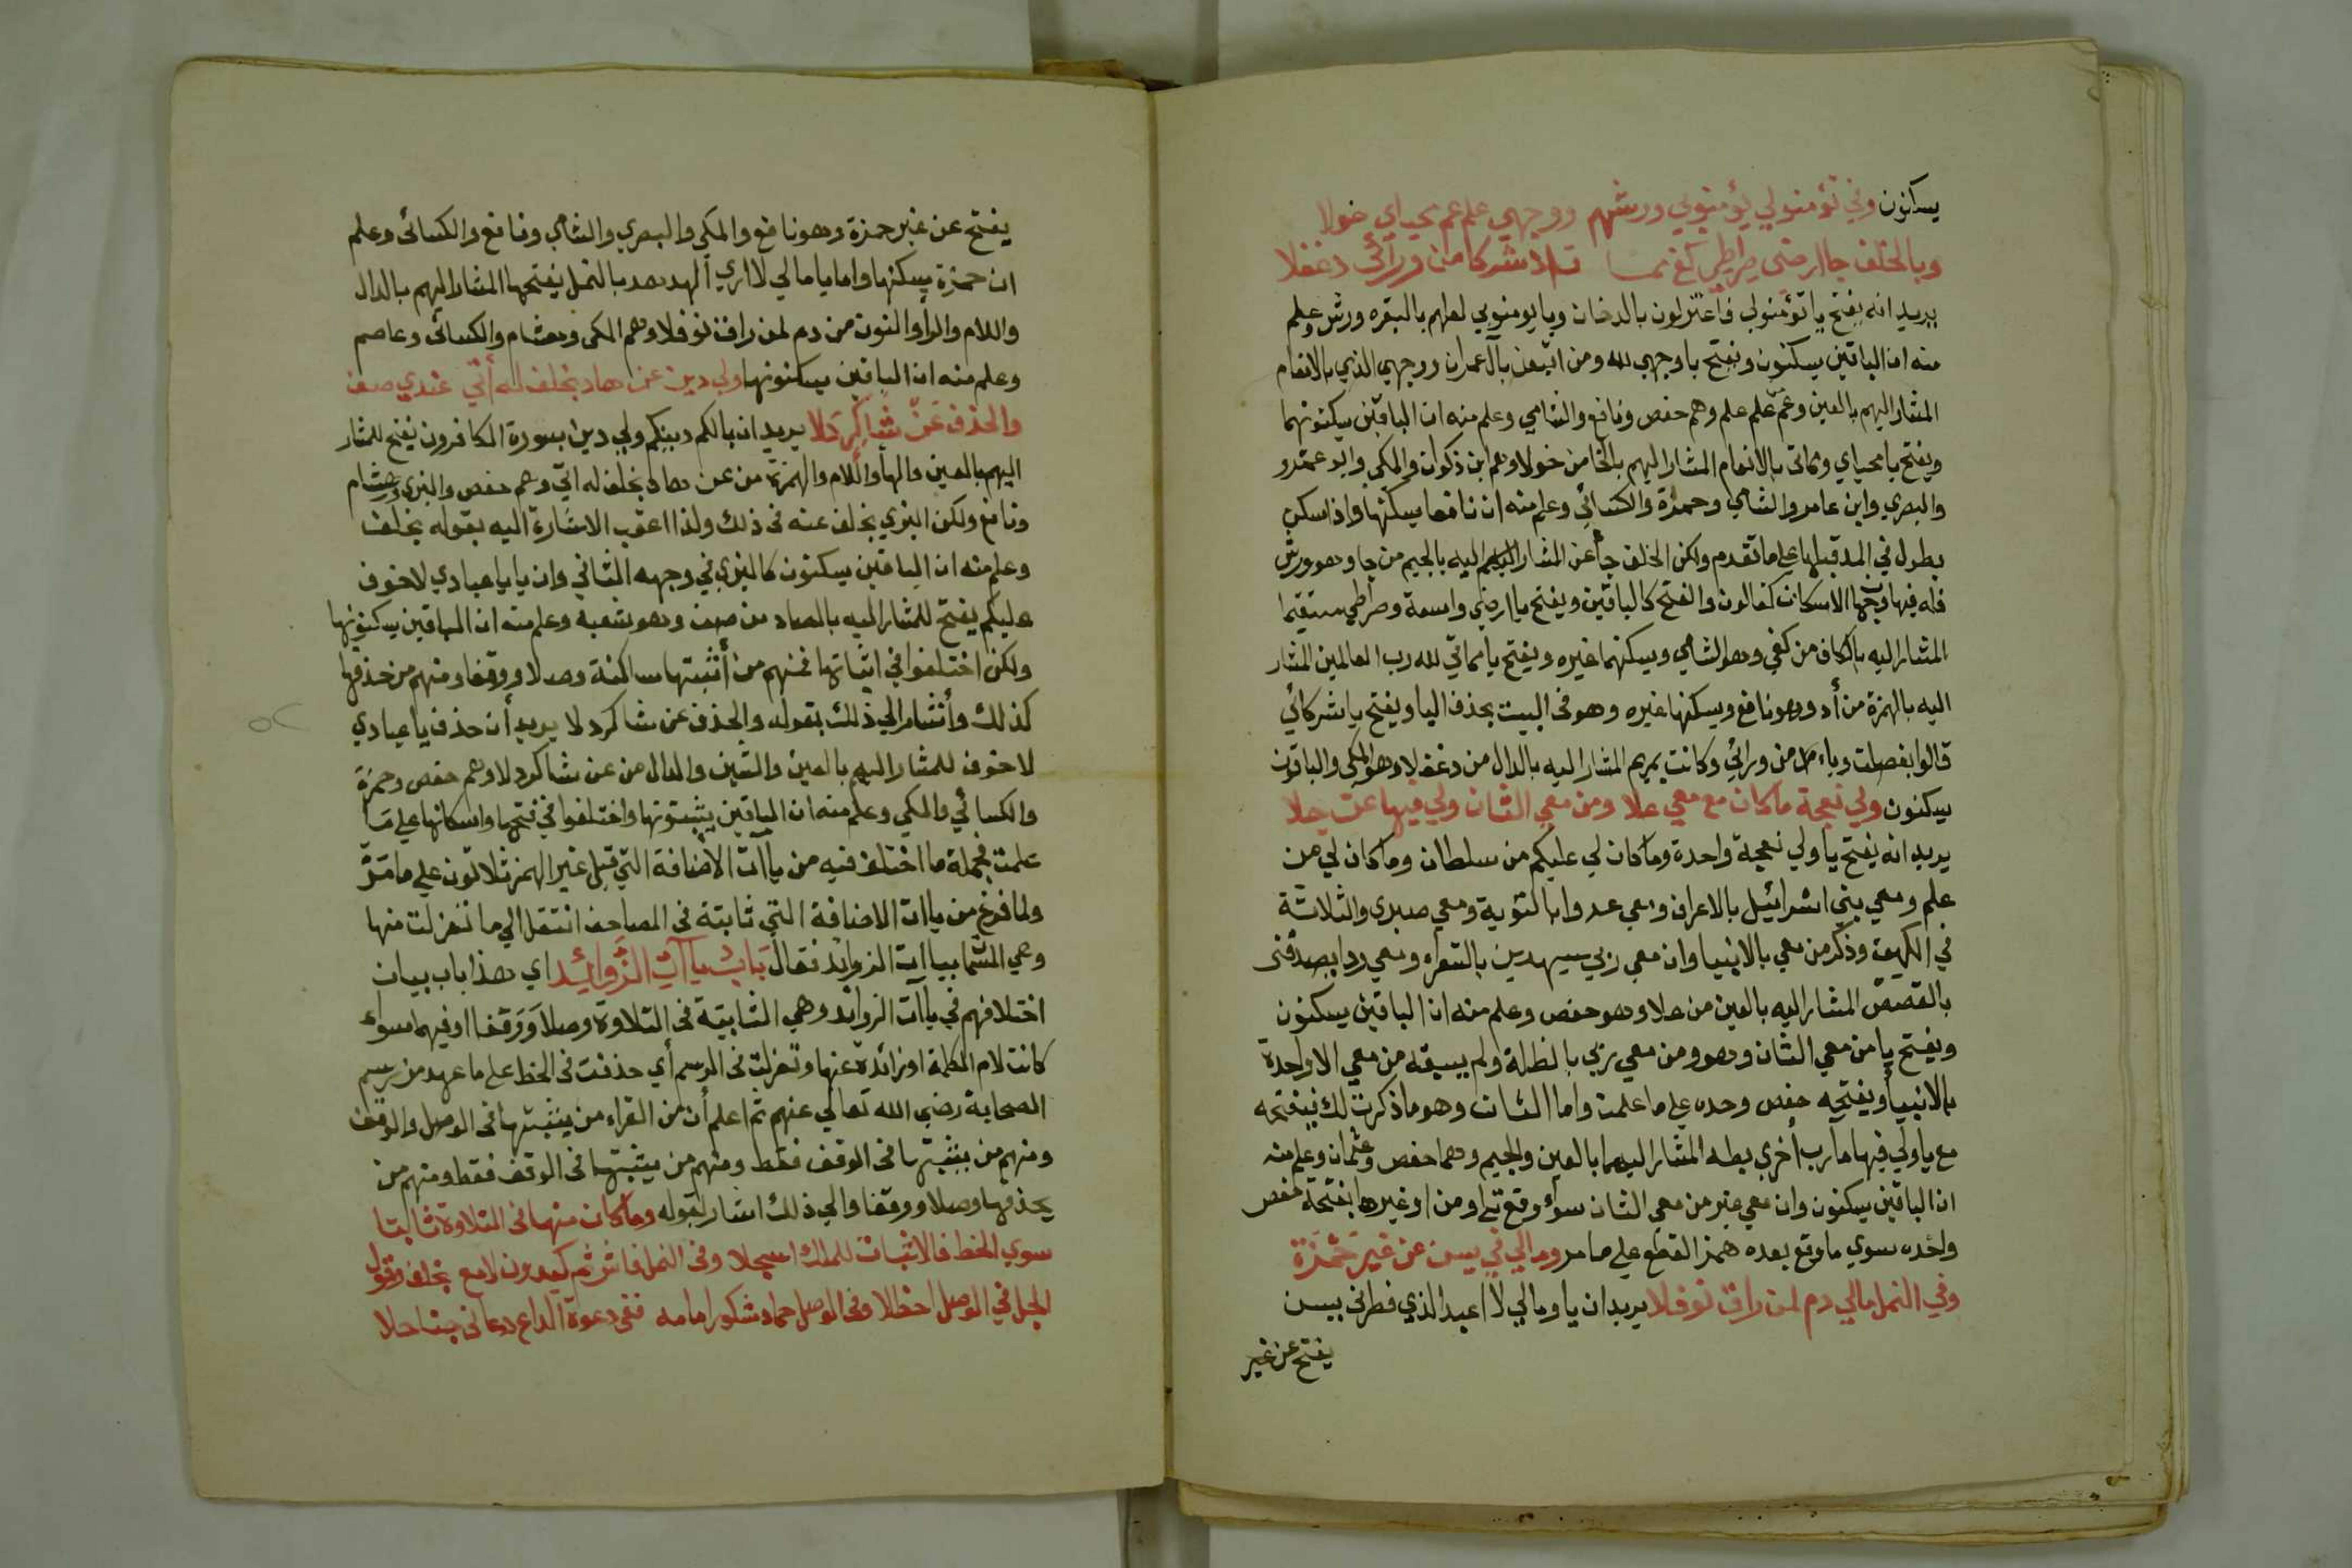 يسكنون وفي تؤمنولي يؤمنوبي ورشهم ووجهي علم عم محياي خولا
وبالخلف جا ارضي صراطي كفي مما ت اد شركا من ورائي دغفلا
يريد انه يفتح يا تؤمنولي فاعتزلون بالدخان ويا يومنوبي لعلهم بالبقره ورش وعلم
منه ان الباقين يسكنون ونفتح يا وجهي لله ومن اتبعن بآل عمران ووجهي الذي بالانعام
المشار اليهم بالعين وعم علم علم وهم حفص ونافع والشامي وعلم منه ان الباقين يسكنونهما
ويفتح يا محياي ومماتي بالانعام المشار اليهم بالخا من خولا وهم ابن ذكوان والمكي وابو عمرو
والبصري وابن عامر والشامي وحمزة والكسائي وعلم منه ان نافعا يسكنها واذا سكن
يطول في المد قبلها علي ما تقدم ولكن الخلف جا عن المشار اليه بالجيم من جا وهو ورش
فله فيها وجها الاسكان كقالون والفتح كالباقين ويفتح يا ارضي واسعة وصراطي مستقيما
المشار اليه بالكاف من كفي وهو الشامي ويسكنهما غيره ويفتح يا مماتي لله رب العالمين المشار
اليه بالهمزة من أد وهو نافع ويسكنها غيره وهو في البيت بحذف اليا ويفتح يا شركائي
قالوا بفصلت ويا من ورائي وكانت بمريم المشار اليه بالدال من دغفلا وهو المكي والباقون
يسكنون ولي نعجة ما كان مع معي علا ومن معي الثان ولي فيها عن جلا
يريد انه يفتح يا ولي نعجة واحدة وما كان لي عليكم من سلطان وما كان لي من
علم ومعي بني اسرائيل بالاعراف ومعي عدوا بالتوبة ومعي صبري والثلاثة
في الكهف وذكر من معي بالانبيا وان معي ربي سيهدين بالشعراء ومعي ردا يصدقني
بالقصص المشار اليه بالعين من علا وهو حفص وعلم منه ان الباقين يسكنون
ويفتح يا من معي الثان وهو ومن معي ربي بالظلة ولم يسبقه من معي الا واحدة
بالانبيا ويفتحه حفص وحده علي ما علمت واما الثان وهو ما ذكرت لك فيفتحه
مع يا ولي فيها مآرب أخري بطه المشار اليهما بالعين والجيم وهما حفص وعثمان وعلم منه
ان الباقين يسكنون وان معي غير من معي الثان سواء وقع تلو من او غيرها يفتحه حفص
وحده سوي ما وقع بعده همز القطع علي ما مر ومالي في يسن عن غير حمزة
وفي النمل مالي دم لمن راق نوفلا يريد ان يا ومالي لا اعبد الذي فطرني بيسن
يفتح عن غير
يفتح عن غير حمزة وهو نافع والمكي والبصري والشامي ونافع والكسائي وعلم
ان حمزة يسكنها واما يا مالي لا اري الهدهد بالنمل يفتحها المشار اليهم بالدال
واللام والرا والنون من دم لمن راق نوفلا وهم المكي وهشام والكسائي وعاصم
وعلم منه ان الباقين يسكنونها ولي دين عن هاد بخلف له أتي عندي صف
والحذف عن شاكر دلا يريد ان يا لكم دينكم ولي دين بسورة الكافرون يفتح للمشار
اليهم بالعين والها واللام والهمزة من عن هاد بخلف له اتي وهم حفص والبزي وهشام
ونافع ولكن البزي بخلف عنه في ذلك ولذا اعقب الاشارة اليه بقوله بخلف
وعلم منه ان الباقين يسكنون كالبزي في وجهه الثاني وان يا يا عبادي لا خوف
عليكم يفتح للمشار اليه بالصاد من صف وهو شعبة وعلم منه ان الباقين يسكنونها
ولكن اختلفوا في اثباتها فمنهم من أثبتها ساكنة وصلا ووقفا ومنهم من حذفها
كذلك وأشار الي ذلك بقوله والحذف عن شاكر دلا يريد أن حذف يا عبادي
لا خوف للمشار اليهم بالعين والشين والدال من عن شاكر دلا وهم حفص وحمزة
والكسائي والمكي وعلم منه ان الباقين يثبتونها واختلفوا في فتحها واسكانها علي ما
علمت فجملة ما اختلف فيه من ياآت الاضافة التي قبل غير الهمز ثلاثون علي ما مر
ولما فرغ من ياات الاضافة التي ثابتة في المصاحف انتقل الي ما نعزلت منها
وهي المسما بياات الزوايد فقال باب ياآت الزوائد اي هذا باب بيان
اختلافهم في ياآت الزوائد وهي الثابتة في التلاوة وصلا ووقفا او فيهما سواء
كانت لام الكلمة او زائدة عنها ونعزلت في الرسم أي حذفت في الخط علي ما عهد من رسم
الصحابة رضي الله تعالي عنهم ثم اعلم أن من القراء من يثبتها في الوصل والوقف
ومنهم من يثبتها في الوقف فقط ومنهم من يثبتها في الوقف فقط ومنهم من
يحذفها وصلا ووقفا والي ذلك اشار بقوله وما كان منها في التلاوة ثابتا
سوي الخط فالاثبات للملك اسجلا وفي النمل فاش ثم كيدون لامع بخلف وقول
الجل في الوصل اخللا وفي الوصل حماد شكور امامه ففي دعوة الداع دعاني جنا حلا